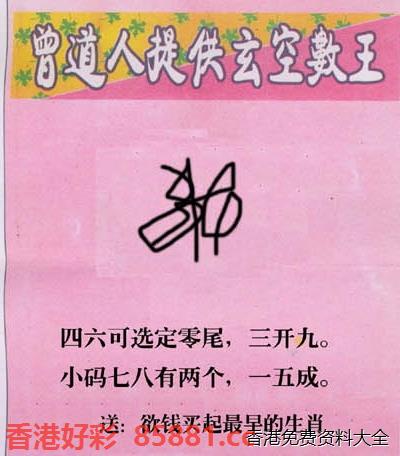 曾道人提供玄空數王
四六可选定零尾，三开九。
小码七八有两个，一五成。
送：欲钱买起最早的生肖
香港好彩 85881.cc
香港免费资料大全